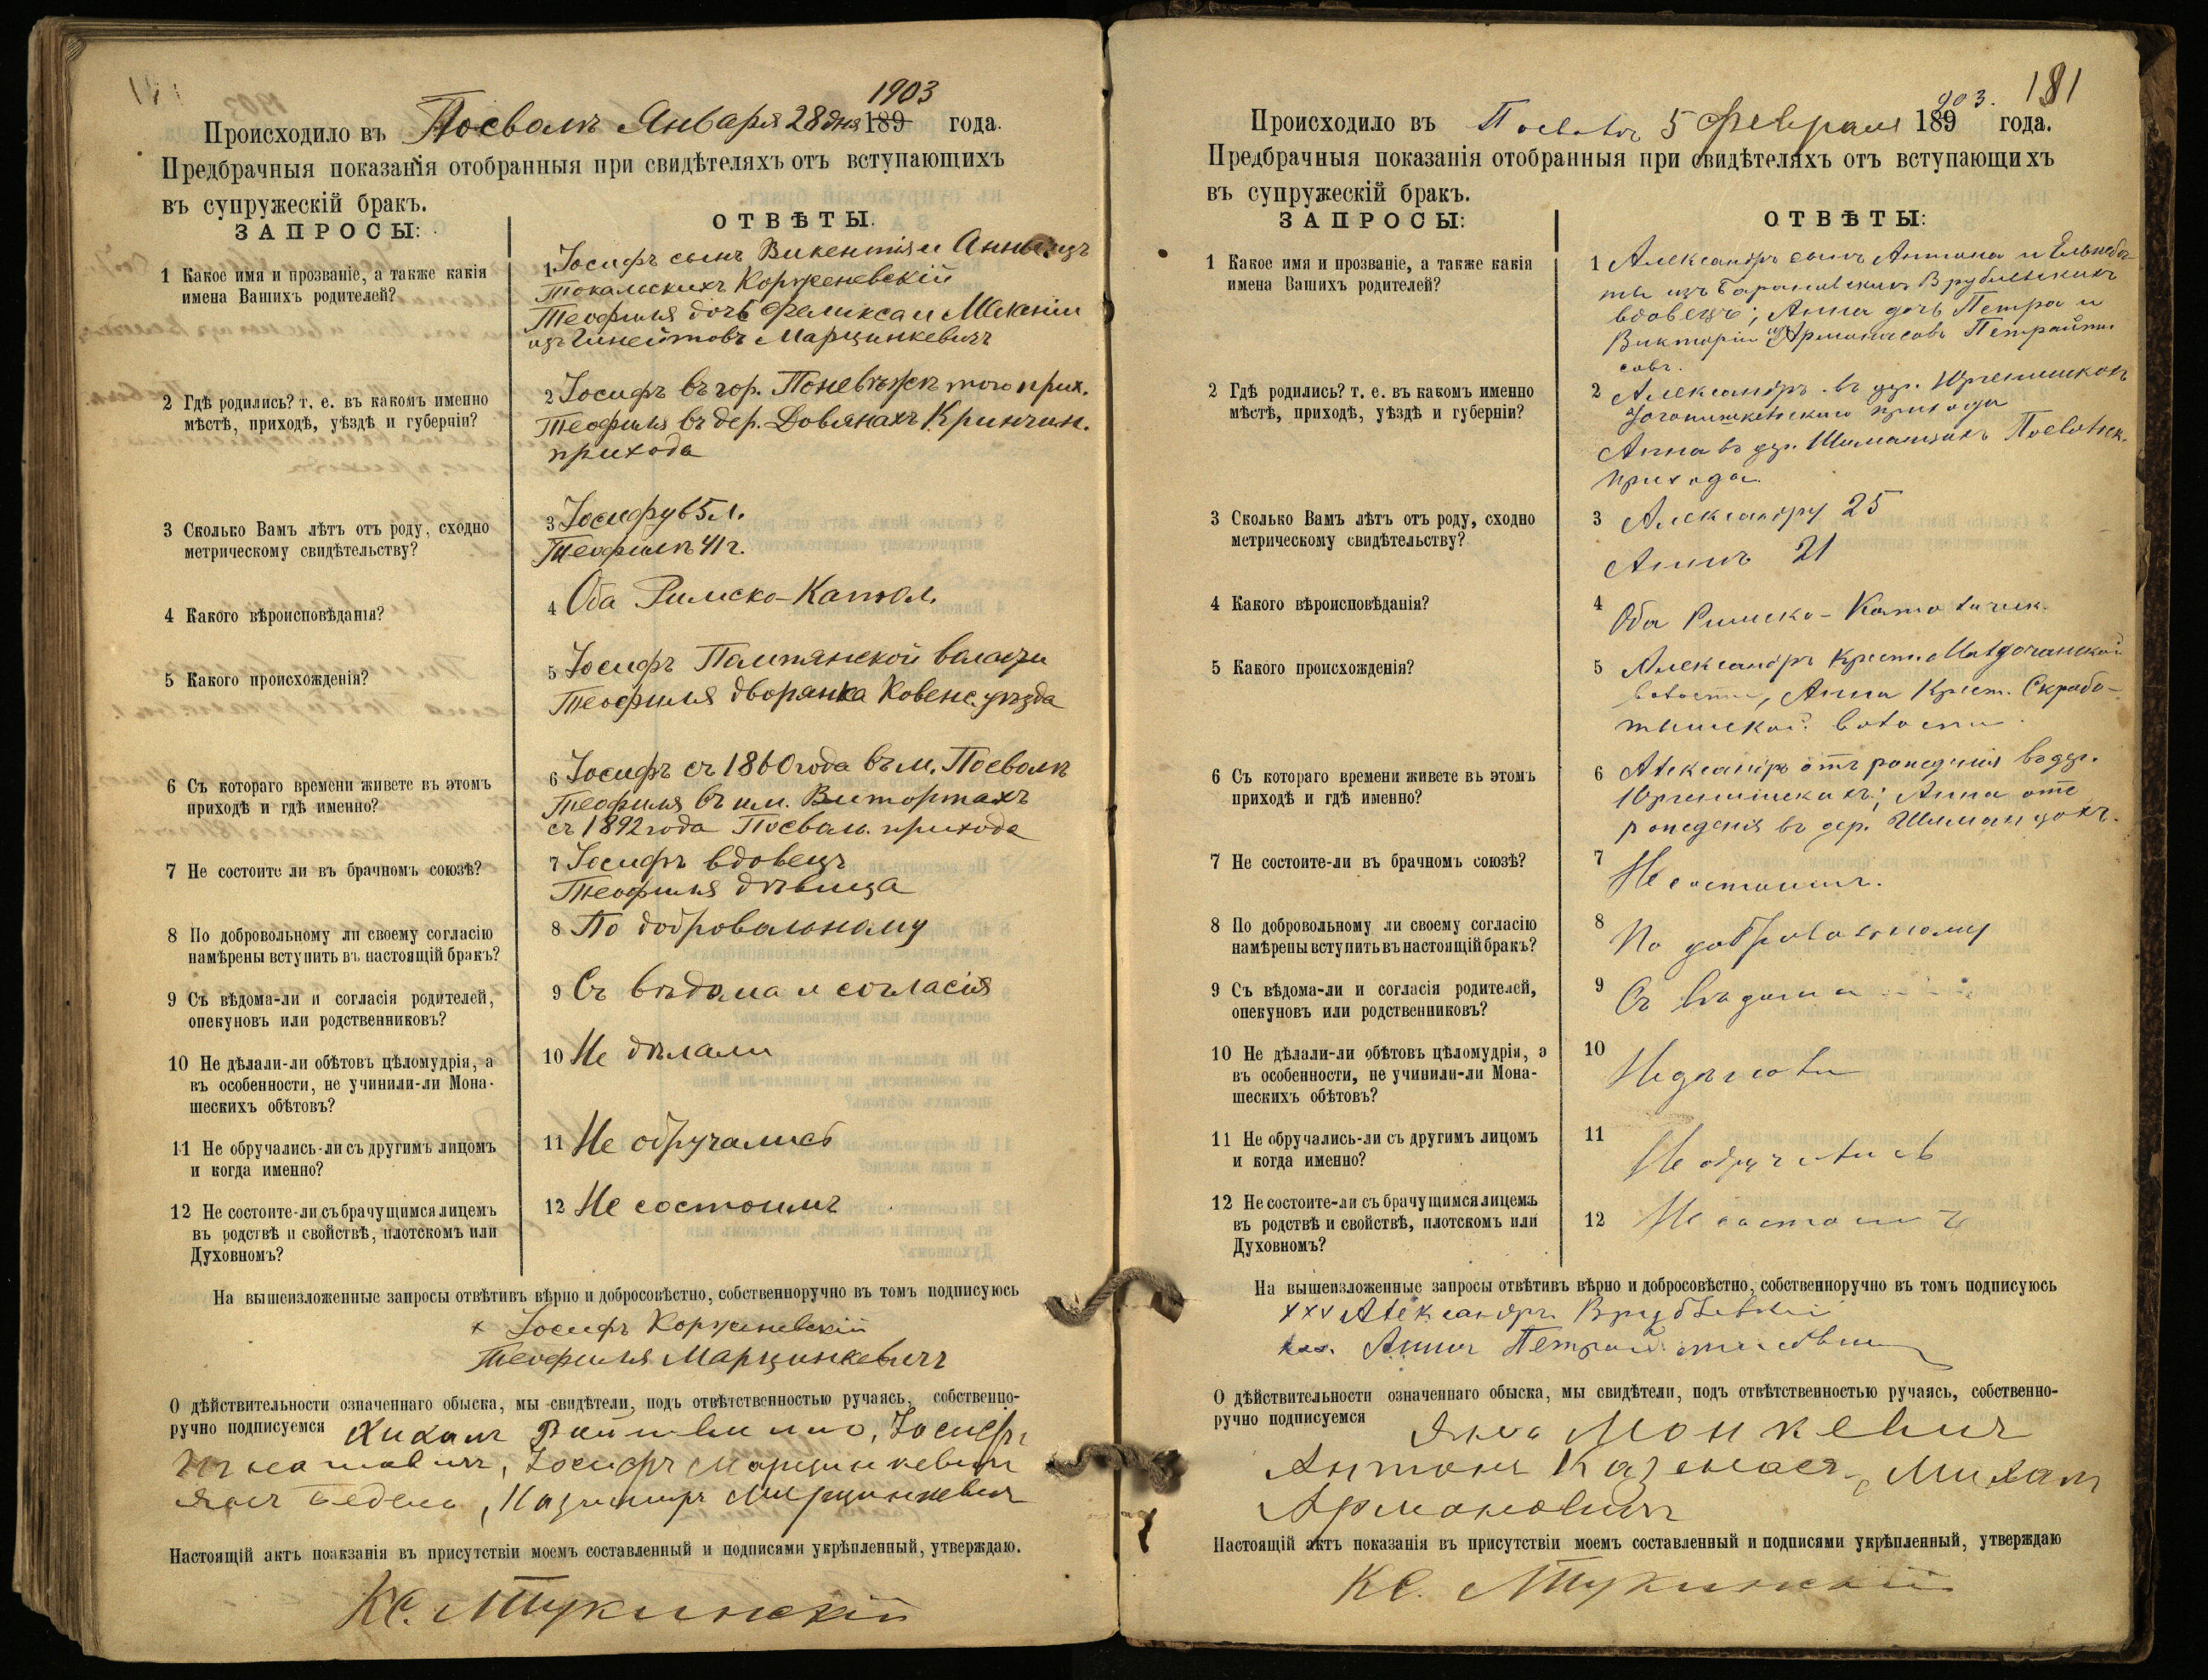 1903
Происходило въ Посволѣ Января 28 дня 189 года.
Предбрачныя показанія отобранныя при свидѣтеляхъ отъ вступающихъ
въ супружескій бракъ.
ЗАПРОСЫ:
ОТВѢТЫ.
1 Какое имя и прозваніе, а также какія
имена Вашихъ родителей?
1 Іосифъ сынъ Викентія и Анны изъ
Токальскихъ Корженевскій
Теофиля дочь Феликса и
изъ Гинейтовъ Марцинкевичъ
2 Гдѣ родились? т. е. въ какомъ именно
мѣстѣ, приходѣ, уѣздѣ и губерніи?
2 Іосифъ въ гор. Поневѣжѣ того прих.
Теофиля въ дер. Довянахъ Кринчин.
прихода
3 Сколько Вамъ лѣтъ отъ роду, сходно
метрическому свидѣтельству?
3 Іосифу 65 л.
Теофилѣ 41 г.
4 Какого вѣроисповѣданія?
4 Оба Римско-Катол.
5 Какого происхожденія?
5 Іосифъ волости
Теофиля дворянка Ковенс. уѣзда
6 Съ котораго времени живете въ этомъ
приходѣ и гдѣ именно?
6 Іосифъ съ 1860 года въ м. Посволѣ
Теофиля въ им.
съ 1892 года Посвол. прихода
7 Не состоите ли въ брачномъ союзѣ?
7 Іосифъ вдовецъ
Теофиля дѣвица
8 По добровольному ли своему согласію
намѣрены вступить въ настоящій бракъ?
8 По добровольному
9 Съ вѣдома-ли и согласія родителей,
опекуновъ или родственниковъ?
9 Съ вѣдома и согласія
10 Не дѣлали-ли обѣтовъ цѣломудрія, а
въ особенности, не учинили-ли Мона-
шескихъ обѣтовъ?
10 Не дѣлали
11 Не обручались-ли съ другимъ лицомъ
и когда именно?
11 Не обручались
12 Не состоите-ли съ брачущимся лицемъ
въ родствѣ и свойствѣ, плотскомъ или
Духовномъ?
12 Не состоимъ
На вышеизложенные запросы отвѣтивъ вѣрно и добросовѣстно, собственноручно въ томъ подписуюсь
× Іосифъ Корженевскій
Теофиля Марцинкевичъ
О дѣйствительности означеннаго обыска, мы свидѣтели, подъ отвѣтственностью ручаясь, собственно-
ручно подписуемся Іосифъ
Игнатовичъ, Іосифъ Марцинкевичъ
Казимиръ Марцинкевичъ
Настоящій актъ поакзанія въ присутствіи моемъ составленный и подписями укрѣпленный, утверждаю.
Кс. Тукинскій
181
903.
Происходило въ Посволѣ 5 Февраля 189 года.
Предбрачныя показанія отобранныя при свидѣтеляхъ отъ вступающихъ
въ супружескій бракъ.
ЗАПРОСЫ:
ОТВѢТЫ:
1 Какое имя и прозваніе, а также какія
имена Вашихъ родителей?
1 Александръ сынъ Антона и Ельжбѣ-
ты изъ Барановскихъ Врублевскихъ
вдовецъ; Анна дочь Петра и
Викторіи изъ Армонасовъ Петрайти-
совъ.
2 Гдѣ родились? т. е. въ какомъ именно
мѣстѣ, приходѣ, уѣздѣ и губерніи?
2 Александръ въ дер. Юргенишкахъ
прихода
Анна въ дер. Шиманцахъ Посвольск.
прихода.
3 Сколько Вамъ лѣтъ отъ роду, сходно
метрическому свидѣтельству?
3 Александру 25
Аннѣ 21
4 Какого вѣроисповѣданія?
4 Оба Римско-Католическ.
5 Какого происхожденія?
5 Александръ крест.
волости, Анна Крест. Скрабо-
тишской волости.
6 Съ котораго времени живете въ этомъ
приходѣ и гдѣ именно?
6 Александръ отъ рожденія въ дер.
Юргенишкахъ; Анна отъ
рожденія въ дер. Шиманцахъ.
7 Не состоите-ли въ брачномъ союзѣ?
7 Не состоимъ.
8 По добровольному ли своему согласію
намѣрены вступить въ настоящій бракъ?
8 По добровольному
9 Съ вѣдома-ли и согласія родителей,
опекуновъ или родственниковъ?
9 Съ вѣдома
10 Не дѣлали-ли обѣтовъ цѣломудрія, а
въ особенности, не учинили-ли Мона-
шескихъ обѣтовъ?
10 Не дѣлали
11 Не обручались-ли съ другимъ лицомъ
и когда именно?
11 Не обручались
12 Не состоите-ли съ брачущимся лицемъ
въ родствѣ и свойствѣ, плотскомъ или
Духовномъ?
12 Не состоимъ
На вышеизложенные запросы отвѣтивъ вѣрно и добросовѣстно, собственноручно въ томъ подписуюсь
××× Александръ Врублевскій
×××. Анна
О дѣйствительности означеннаго обыска, мы свидѣтели, подъ отвѣтственностью ручаясь, собственно-
ручно подписуемся Янъ Монкевичъ
Антонъ Михалъ
Армоновичъ
Настоящій актъ показанія въ присутствіи моемъ составленный и подписями укрѣпленный, утверждаю
Кс. Тукинскій